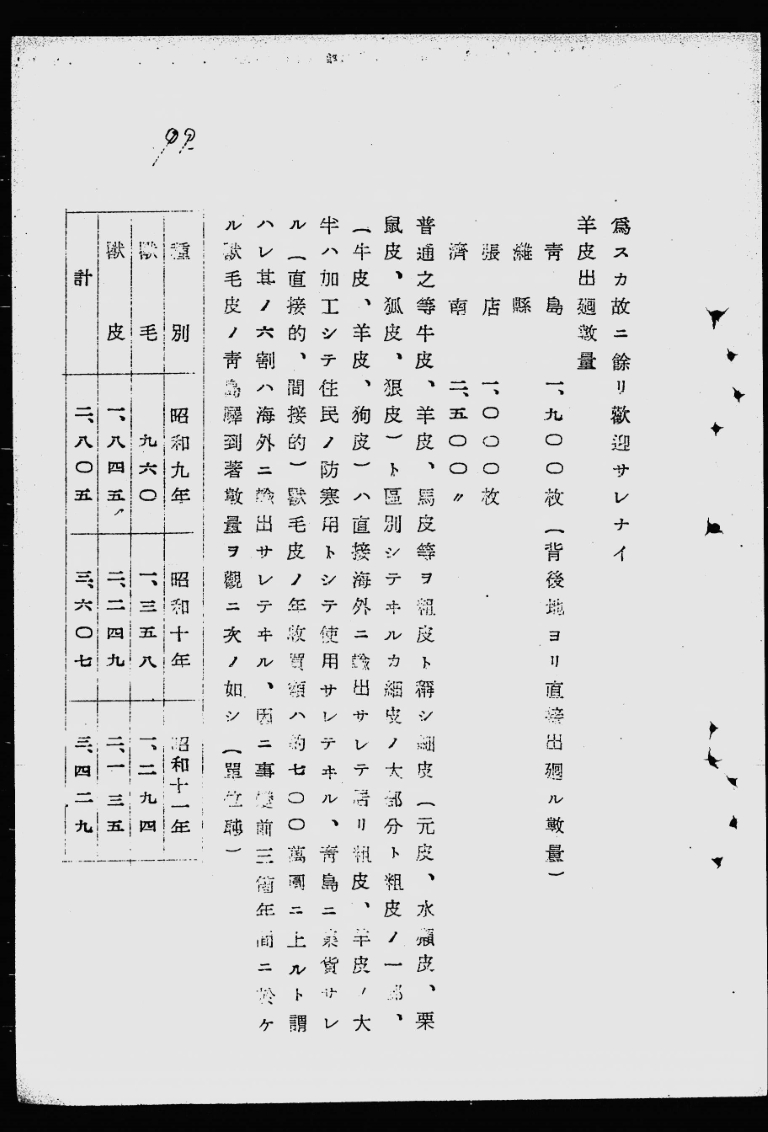 99
為スカ故ニ餘リ歡迎サレナイ
羊皮出廻數量
靑島 一、九〇〇枚（背後地ヨリ直接出廻ル數量）
維縣
張店 一、〇〇〇枚
濟南 二、五〇〇〃
普通之等牛皮、羊皮、馬皮等ヲ粗皮ト稱シ細皮（元皮、水獺皮、栗
鼠皮、狐皮、狼皮）ト區別シテヰルカ細皮ノ大部分ト粗皮ノ一部、
（牛皮、羊皮、狗皮）ハ直接海外ニ輸出サレテ居リ粗皮、羊皮ノ大
半ハ加工シテ住民ノ防寒用トシテ使用サレテヰル、靑島ニ集貨サレ
ル（直接的、間接的）獸毛皮ノ年收買額ハ約七〇〇萬圓ニ上ルト謂
ハレ其ノ六割ハ海外ニ輸出サレテヰル、因ニ事變前三箇年間ニ於ケ
ル獸毛皮ノ靑島驛到著數量ヲ觀ニ次ノ如シ（單位瓲）
種別 昭和九年 昭和十年 昭和十一年
獸毛 九六〇 一、三五八 一、二九四
獸皮 一、八四五 二、二四九 二、一三五
計 二、八〇五 三、六〇七 三、四二九